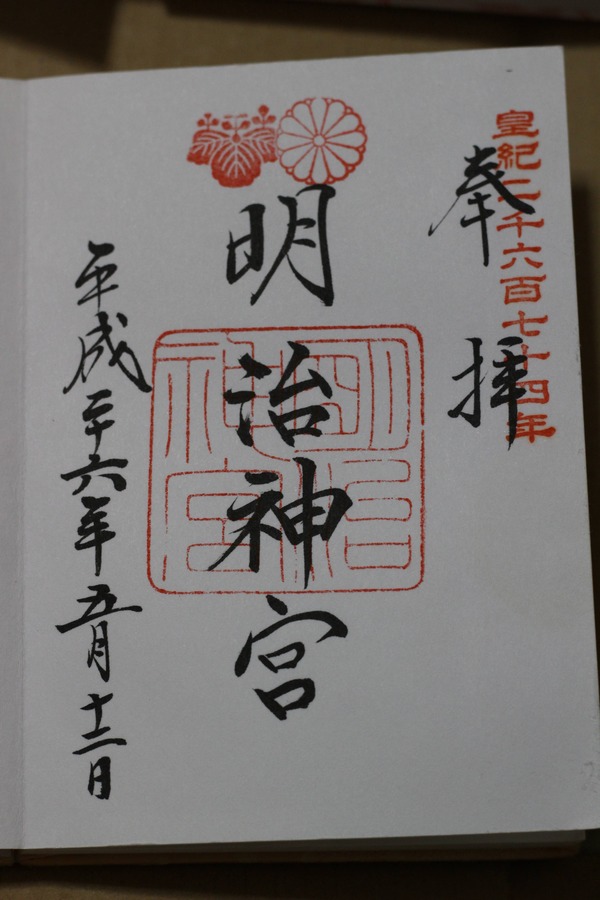 皇紀二千六百七十四年
奉拝
明治神宮
明治
神宮
平成二十六年五月十二日